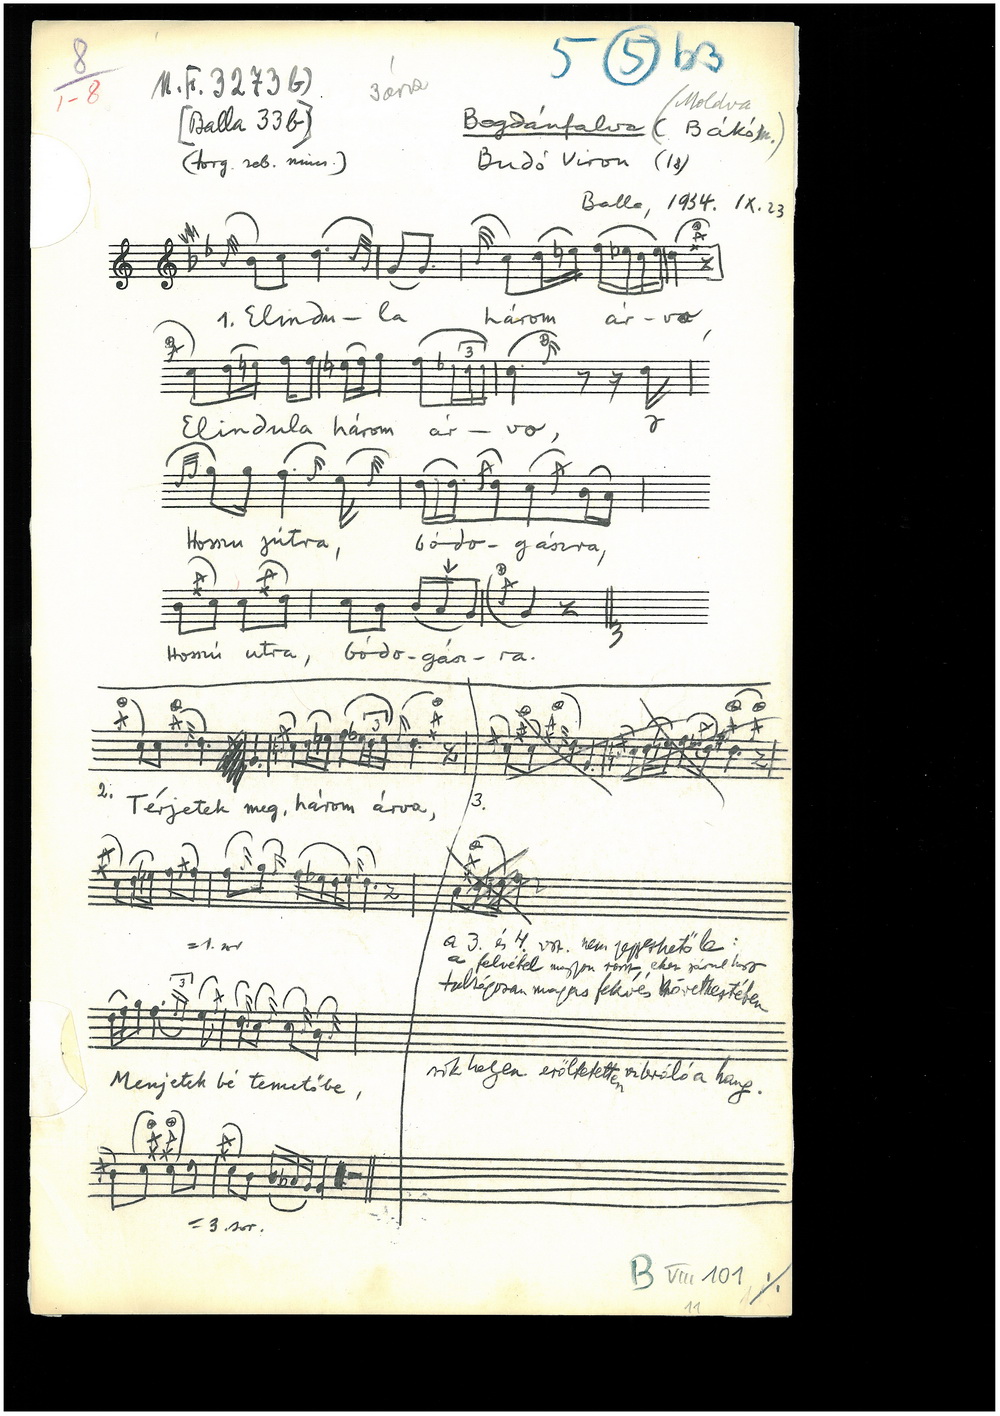 8
1-8
5 5 b3
M.F. 3273 b)
3 árva
[Balla 33b]
(Moldva
Bogdánfalva (Bákó m.)
Budó Viron (18)
Balla, 1934. IX. 23
1. Elindu – la három ár – va,
3
Elindula három ár – va,
Hosszu jútra, bó-do- gászra,
Hosszú utra, bó-do-gász-ra.
3
2. Térjetek meg, három árva,
3.
= 1. sor
a 3. és 4. vsz. nem jegyezhető le:
a felvétel nagyon rossz,
túlságosan magas fekvés következtében
sok helyen erőltetetten vibráló a hang.
3
Menjetek bé temetőbe,
= 3. sor.
B VIII 101 ./.
11